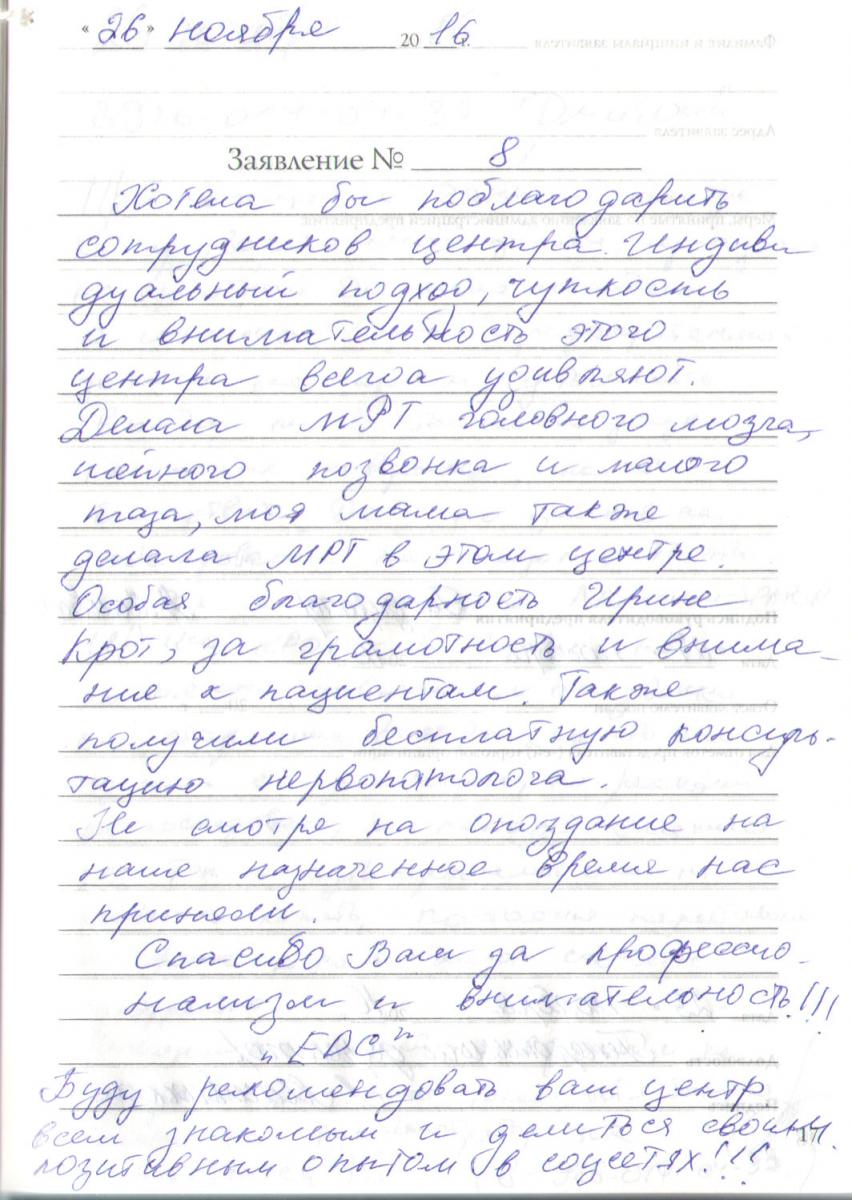 « 26 » ноября 2016 г.
Заявление № 8
Хотела бы поблагодарить
сотрудников центра. Индиви
дуальный подход, чуткость
и внимательность этого
центра всегда удивляют.
Делала МРТ головного мозга,
шейного позвонка и малого
таза, моя мама также
делала МРТ в этом центре.
Особая благодарность Ирине
Крот, за грамотность и внима-
ние к пациентам. Также
получили бесплатную консуль-
тацию нервопатолога.
Не смотря на опоздание на
наше назначенное время нас
приняли.
Спасибо Вам за профессио-
нализм и внимательность!!!
„EDC"
Буду рекомендовать ваш центр
всем знакомым и делиться своим
позитивным опытом в соцсетях!!!
17